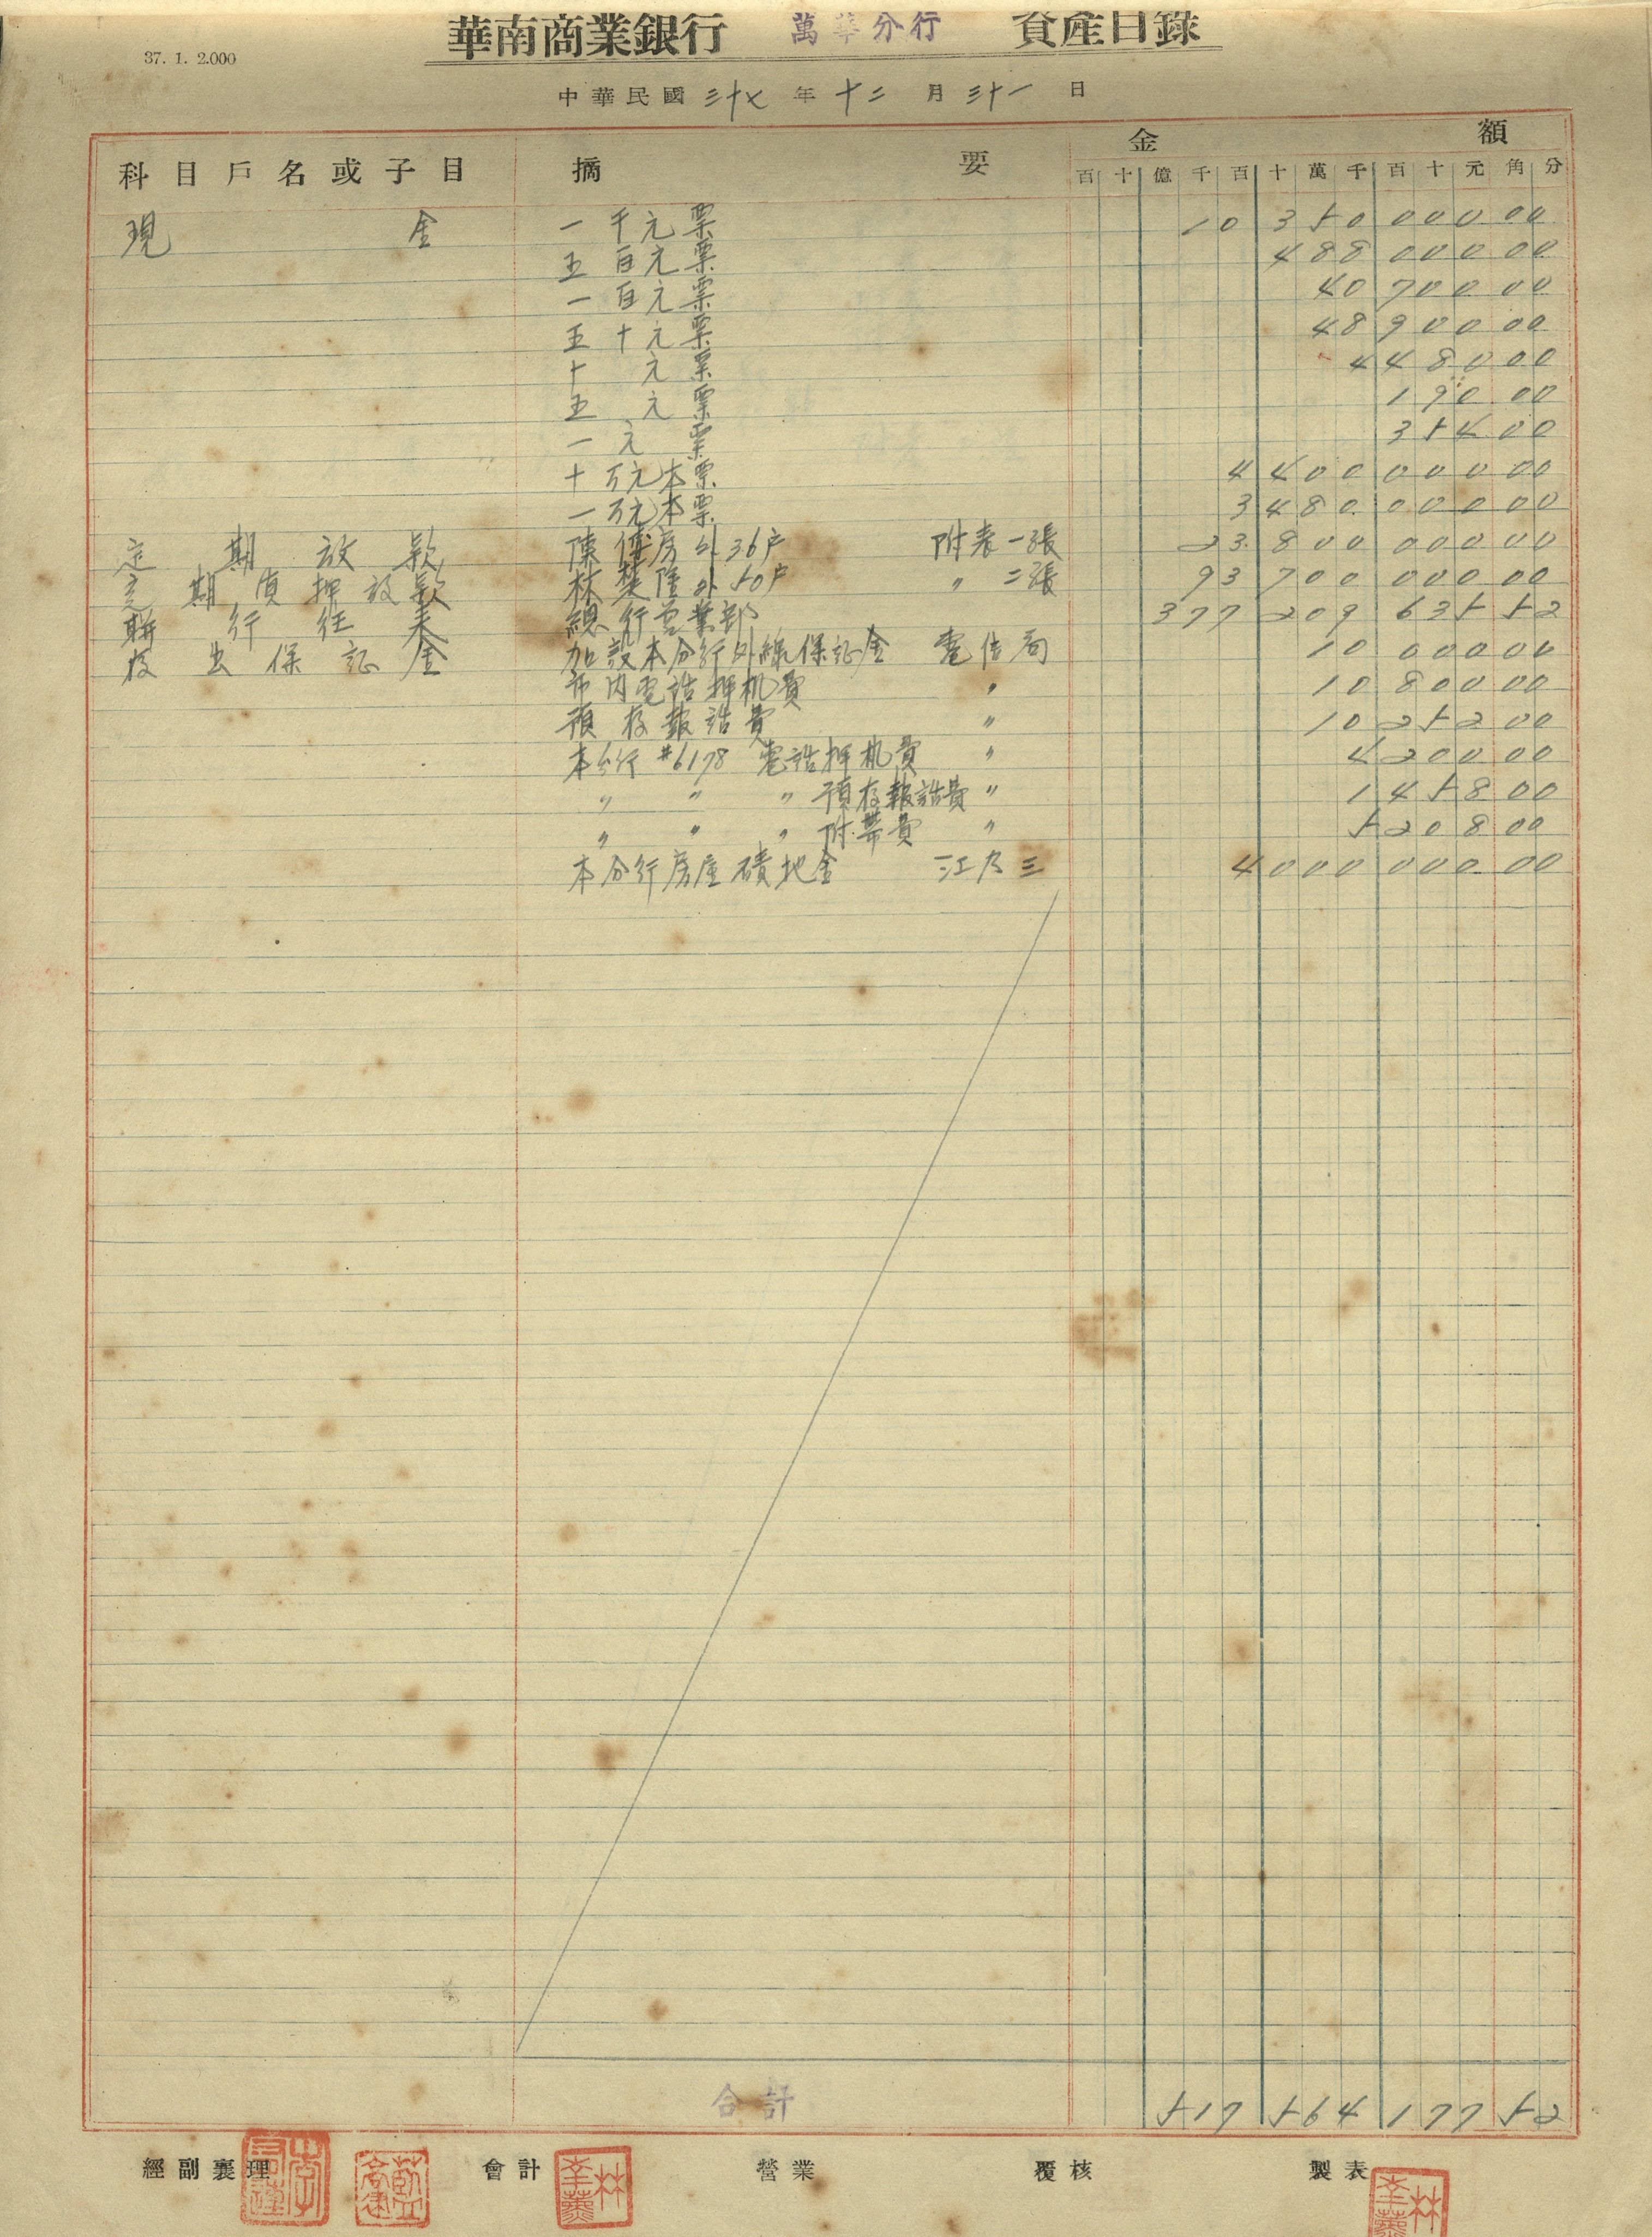 華南商業銀行 萬華分行 資産目錄
37. 1. 2.000
中華民國 三十七 年 十二 月 三十一 日
科目戶名或子目 摘要 金額
百十億千百十萬千百十元角分
現金 一千元票 10 350 000 00
五百元票 488 000 00
一百元票 40 700 00
五十元票 48 900 00
十元票 4 480 00
五元票 190 00
一元票 354 00
十万元本票 4 400 000 00
一万元本票 3 480 000 00
定期放款 陳傳房外36户 附表一張 23 800 000 00
定期質押放款 林楚隆外50户 〃 二張 93 700 000 00
聯行往來 總行营業部 377 209 635 52
存出保証金 加設本分行外線保証金 電信局 10 000 00
市内電話押机費 〃 10 800 00
預存報話費 〃 10 252 00
本分行 #6178 電話押机費 〃 4 200 00
〃 〃 〃 預存報話費 〃 1 458 00
〃 〃 〃 附帶費 〃 5 208 00
本分行房屋磧地金 江乃三 4 000 000 00
合計 517 564 177 52
經副襄理 會計 營業 覆核 製表